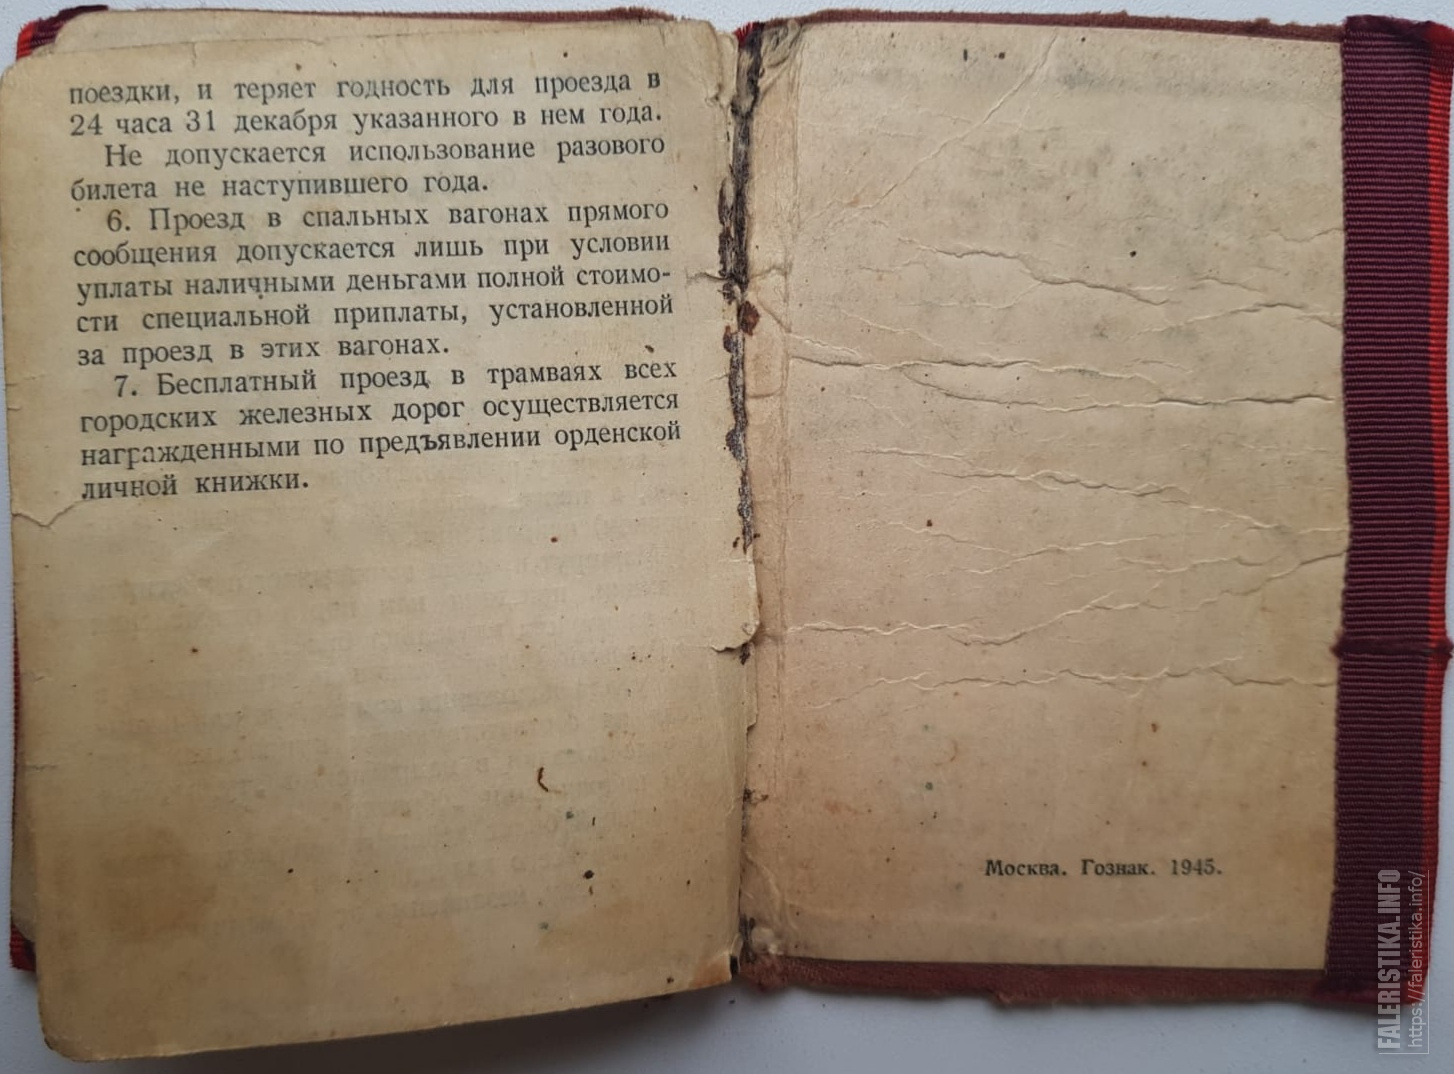 поездки, и теряет годность для проезда в
24 часа 31 декабря указанного в нем года.
Не допускается использование разового
билета не наступившего года.
6. Проезд в спальных вагонах прямого
сообщения допускается лишь при условии
уплаты наличными деньгами полной стоимо-
сти специальной приплаты, установленной
за проезд в этих вагонах.
7. Бесплатный проезд в трамваях всех
городских железных дорог осуществляется
награжденными по предъявлении орденской
личной книжки.
Москва. Гознак. 1945.
FALERISTIKA.INFO
https://faleristika.info/